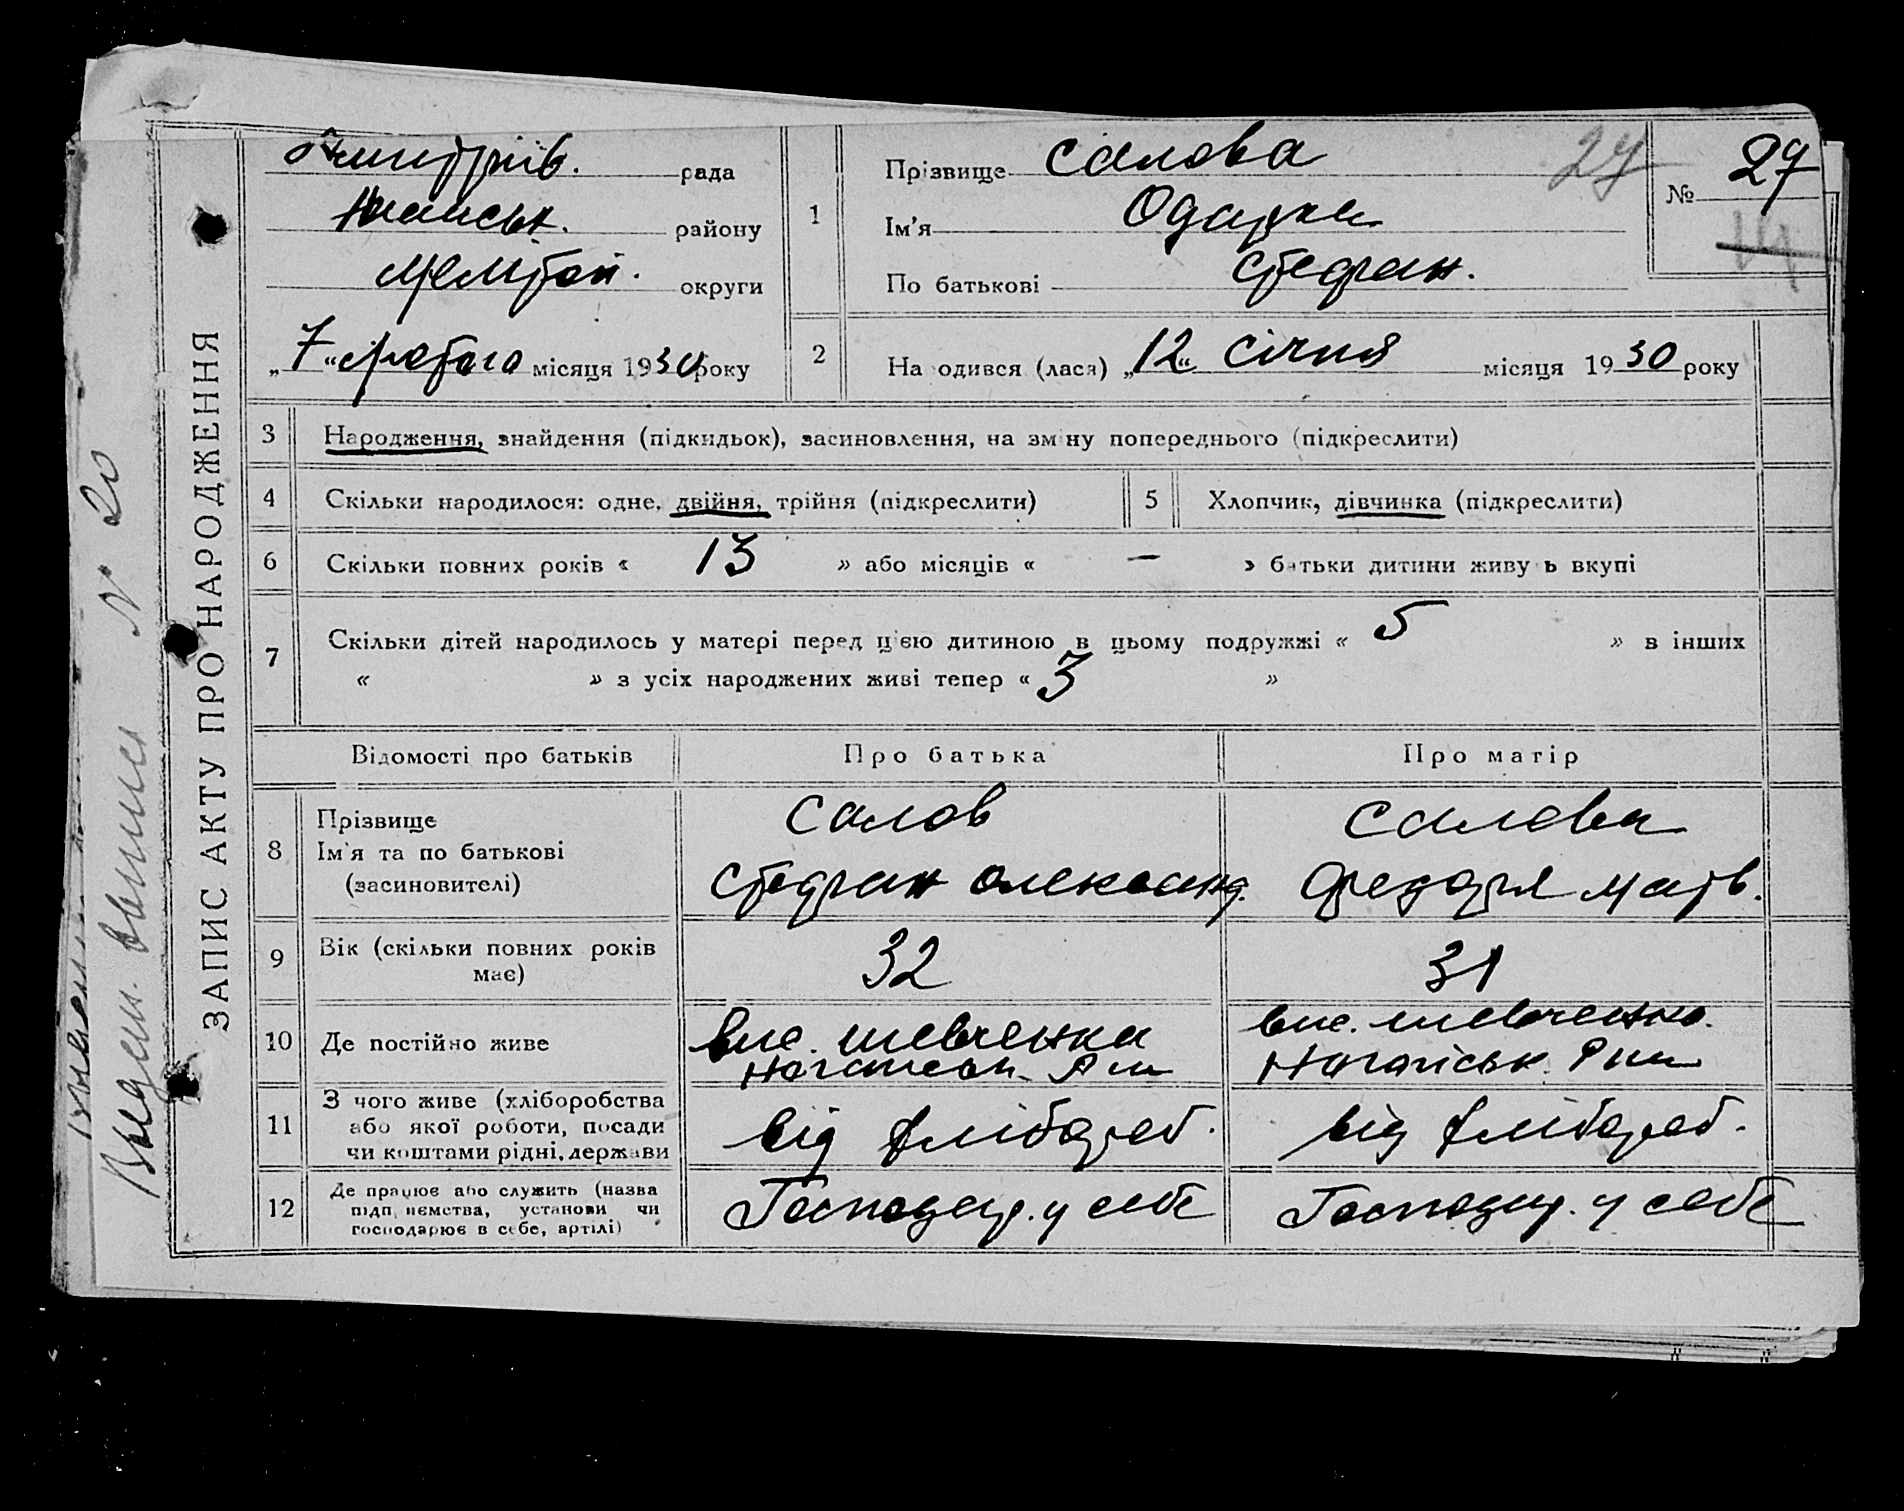 ЗАПИС АКТУ ПРО НАРОДЖЕННЯ
Дмитрів. рада
району
Мелітоп. округи
„7“ лютого місяця 1930 року
1
Прізвище Салова
Ім'я Одарка
По батькові Стефан.
27
№ 27
2
На одився (лася) „12“ січня місяця 1930 року
3 Народження, знайдення (підкидьок), засиновлення, на зм ну попереднього (підкреслити)
4 Скільки народилося: одне, двійня, трійня (підкреслити)
5 Хлопчик, дівчинка (підкреслити)
6 Скільки повних років « 13 » або місяців « — » батьки дитини живу ь вкупі
7 Скільки дітей народилось у матері перед цією дитиною в цьому подружжі « 5 » в інших
« » з усіх народжених живі тепер « 3 »
Відомості про батьків
Про батька
Про матір
8 Прізвище
Ім'я та по батькові
(засиновителі)
Салов
Стефан Олександ.
Салова
Федора Матв.
9 Вік (скільки повних років
має)
32
31
10 Де постійно живе
вис. Шевченка
Ногайськ. Рну
вис. Шевченко.
Ногайськ. Рну
11 З чого живе (хліборобства
або якої роботи, посади
чи коштами рідні, держави
від хлібороб.
від хлібороб.
12 Де працює або служить (назва
підп иємства, установи чи
господарює в себе, артілі)
Господар. у себе
Господар. у себе
Выдан. выпись № 20